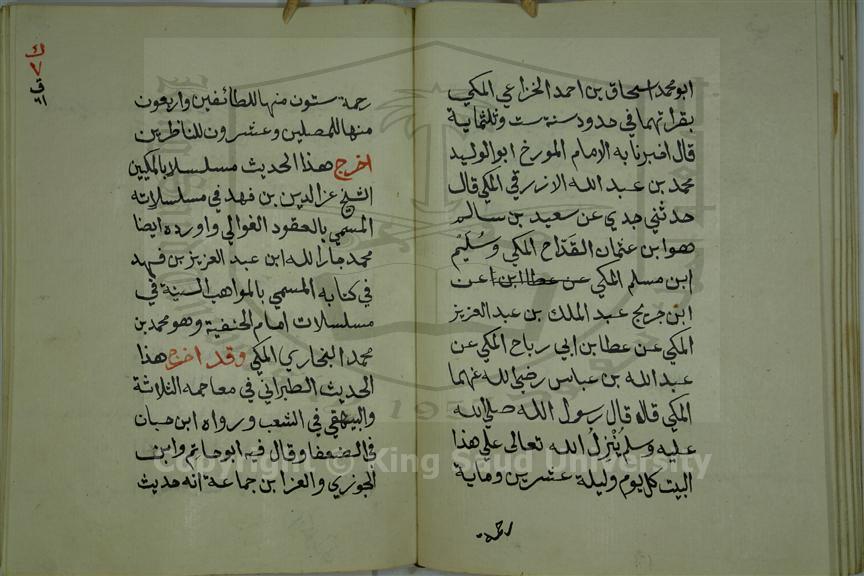 ابو محمد اسحاق بن احمد الخزاعي المكي
بقراتهما في حدود سنه ست وثلثماية
قال اخبرنا به الامام المورخ ابو الوليد
محمد بن عبد الله الازرقي المكي قال
حدثني جدي عن سعيد بن سالم
هو ابن عثمان القداح المكي وسُلَيْم
ابن مسلم المكي عن عطا ابن ا عن
ابن جريج عبد الملك بن عبد العزيز
المكي عن عطا بن ابي رباح المكي عن
عبد الله بن عباس رضي الله عنهما
المكي قال قال رسول الله صلي الله
عليه وسلم يُنْزِلُ الله تعالى علي هذا
البيت كل يوم وليلة عشرين وماية
رحمة
رحمة ستون منها للطائفين واربعون
منها للمصلين وعشرون للناظرين
اخرج هذا الحديث مسلسلا بالمكيين
الشيخ عز الدين بن فهد في مسلسلاته
المسمي بالعقود الغوالي واورده ايضا
محمد جار الله ابن عبد العزيز بن فهد
في كتابه المسمي بالمواهب السنية في
مسلسلات امام الحنفية وهو محمد بن
محمد البخاري المكي وقد اخرج هذا
الحديث الطبراني في معاجمه الثلاثة
والبيهقي في الشعب ورواه ابن حبان
في الضعفا وقال فيه ابو حاتم وابن
الجوزي والعز ابن جماعة انه حديث
ك
٧
Copyright © King Saud University